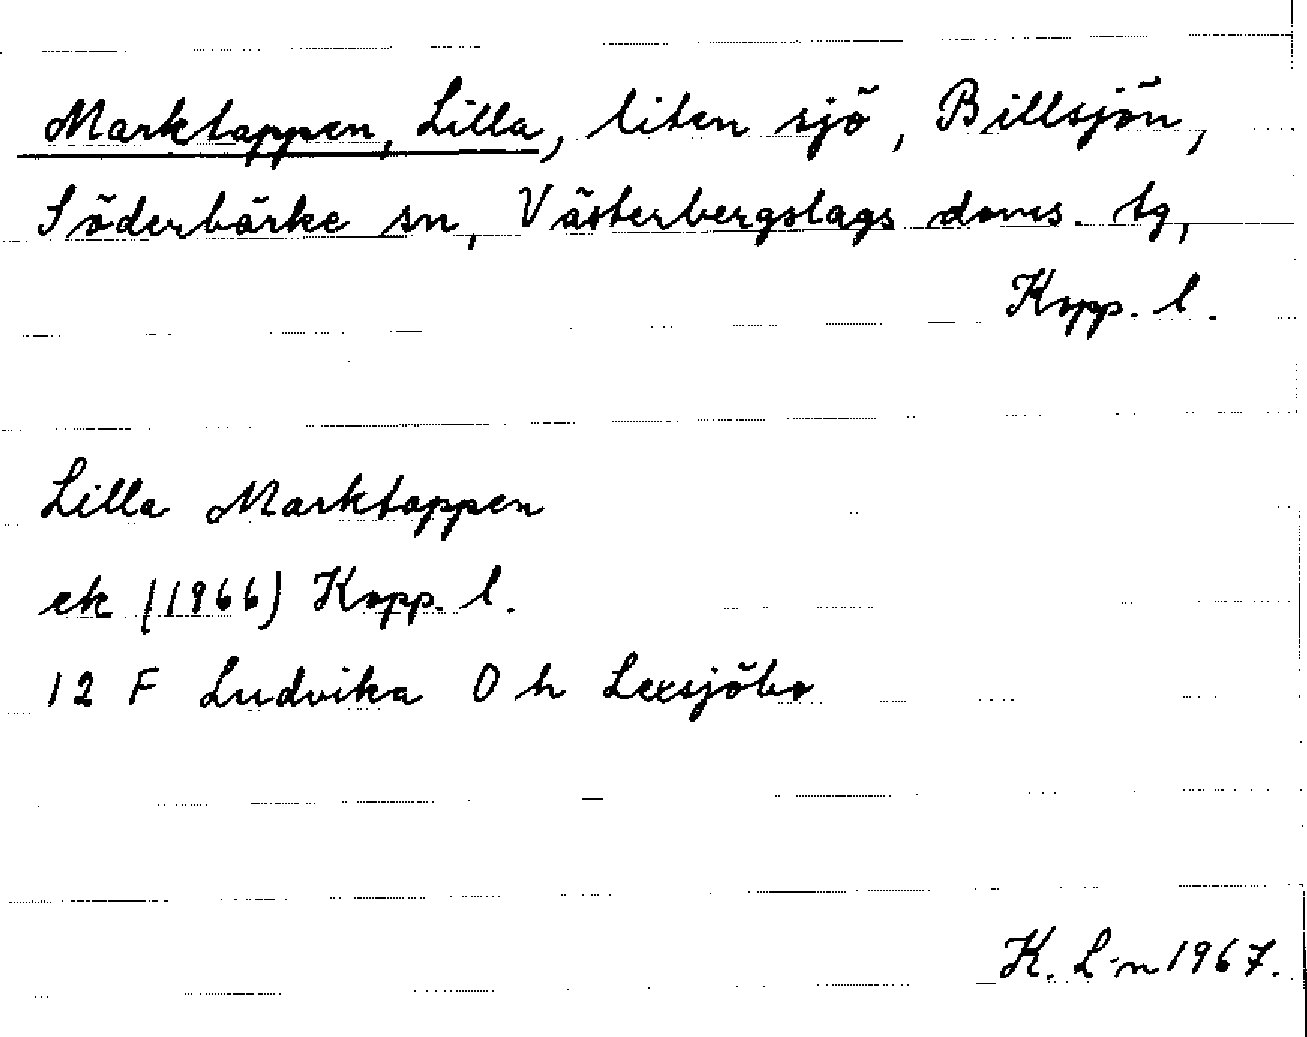 Marktappen, Lilla, liten sjö, Billsjön,
Söderbärke sn, Västerbergslags doms. tg,
Kopp. l.
Lilla Marktappen
ek (1966) Kopp. l.
12 F Ludvika 0 h Lexsjöbo
K. L-n 1967.